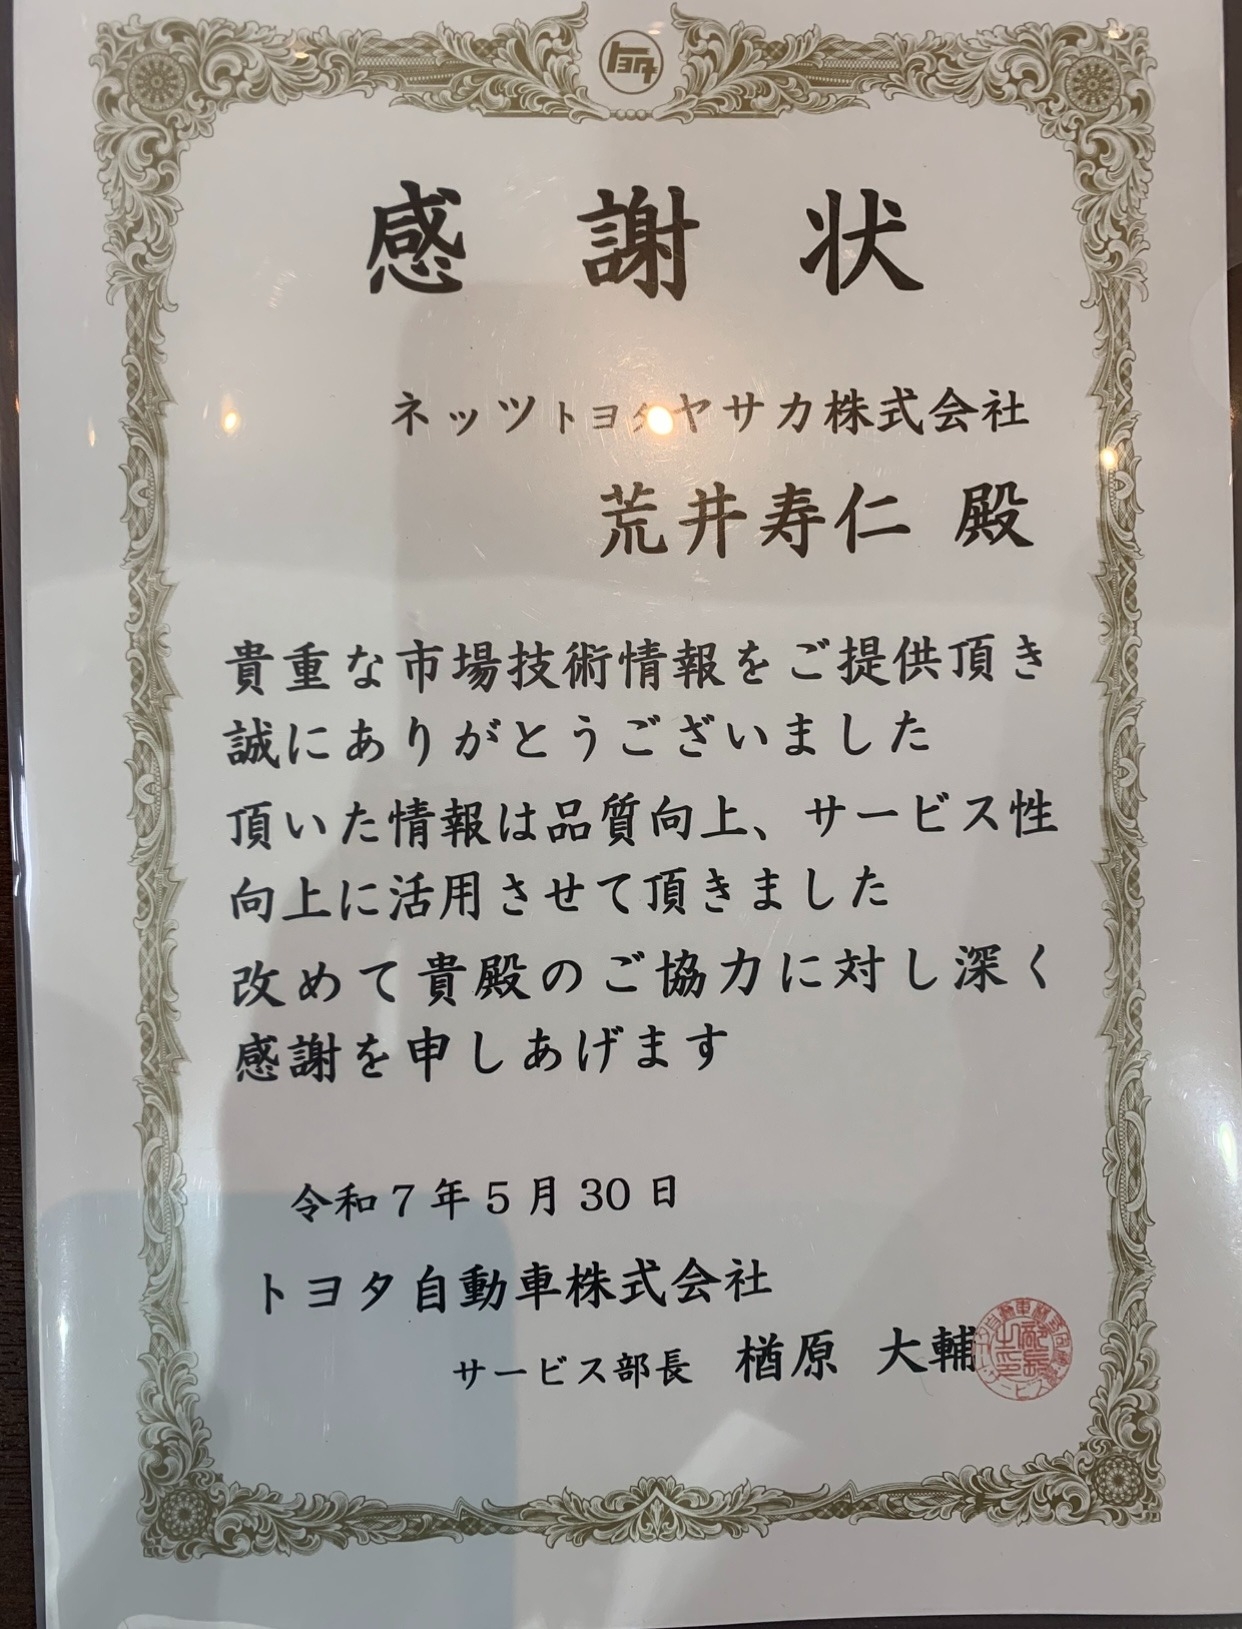 トヨタ
感謝状
ネッツトヨタヤサカ株式会社
荒井寿仁 殿
貴重な市場技術情報をご提供頂き
誠にありがとうございました
頂いた情報は品質向上、サービス性
向上に活用させて頂きました
改めて貴殿のご協力に対し深く
感謝を申しあげます
令和7年5月30日
トヨタ自動車株式会社
サービス部長 楢原 大輔